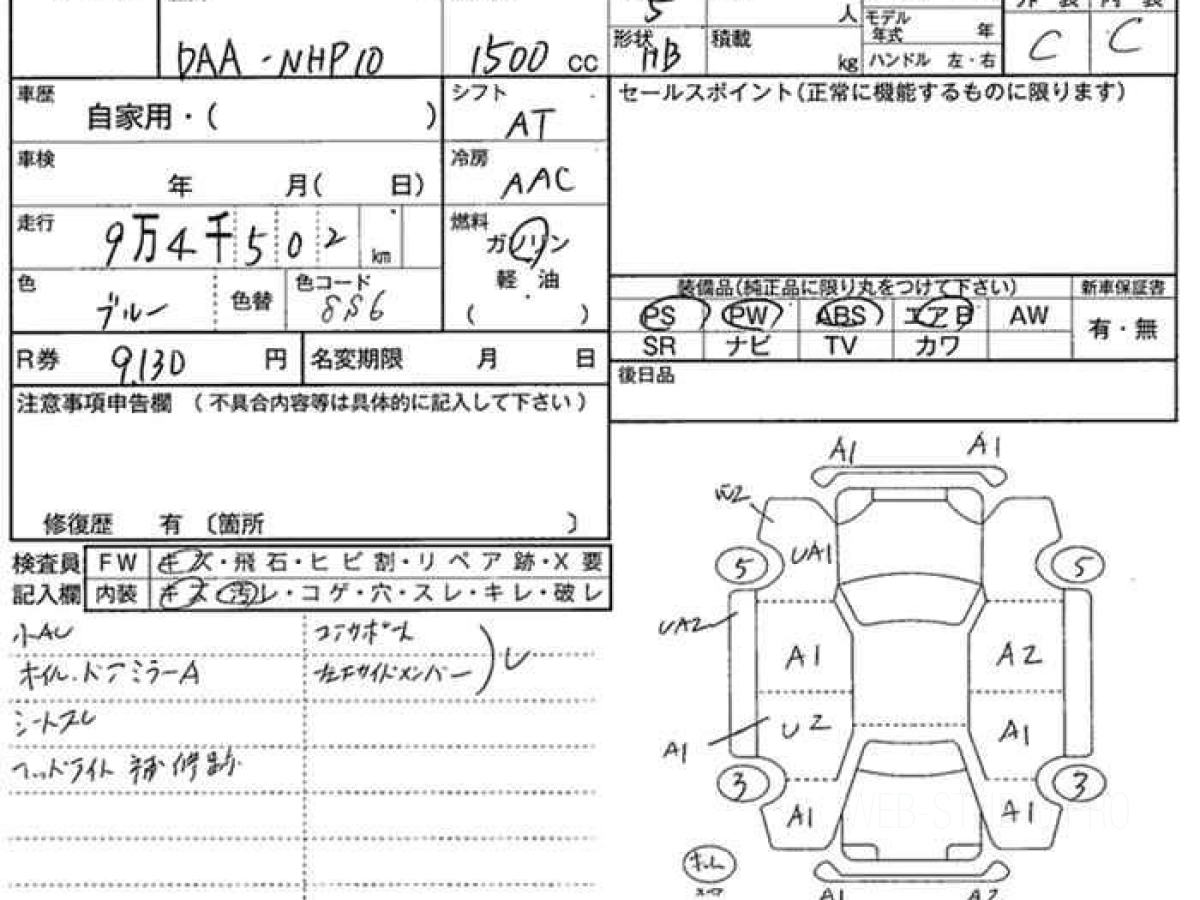 5 人 モデル年式 年 外装 内装
DAA-NHP10 1500 cc 形状 HB 積載 kg ハンドル 左・右 C C
車歴 自家用・( ) シフト AT
セールスポイント(正常に機能するものに限ります)
車検 年 月( 日) 冷房 AAC
走行 9万4千502 km 燃料 ガソリン
軽油
( )
色 ブルー 色替 色コード 8S6
装備品(純正品に限り丸をつけて下さい) 新車保証書
PS PW ABS エアB AW 有・無
SR ナビ TV カワ
R券 9,130 円 名変期限 月 日
後日品
注意事項申告欄 (不具合内容等は具体的に記入して下さい)
修復歴 有 〔箇所 〕
検査員 FW キズ・飛石・ヒビ割・リペア跡・X要
記入欄 内装 キズ 汚レ・コゲ・穴・スレ・キレ・破レ
小AU
コアサポート
オイル.ドアミラーA
左右サイドメンバー
シートスレ
ヘッドライト 補修跡
A1 A1
W2
UA1
5 5
UA2
A1 A2
U2 A1
A1
3 3
A1 A1
WEB-ST
A1 A2